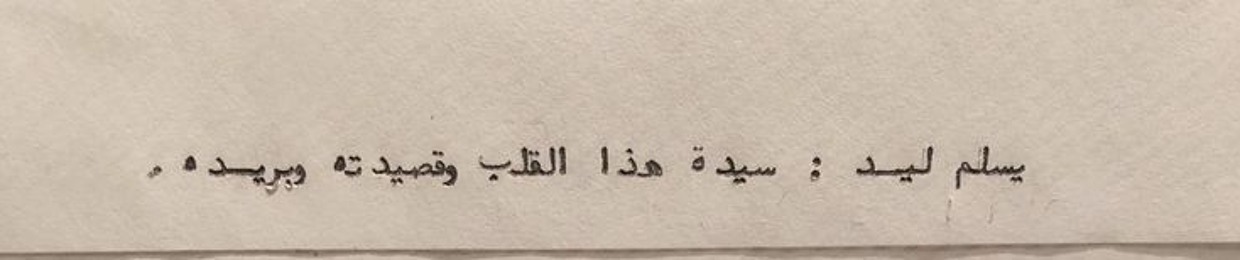 يسلم ليد : سيدة هذا القلب وقصيدته وبريده .